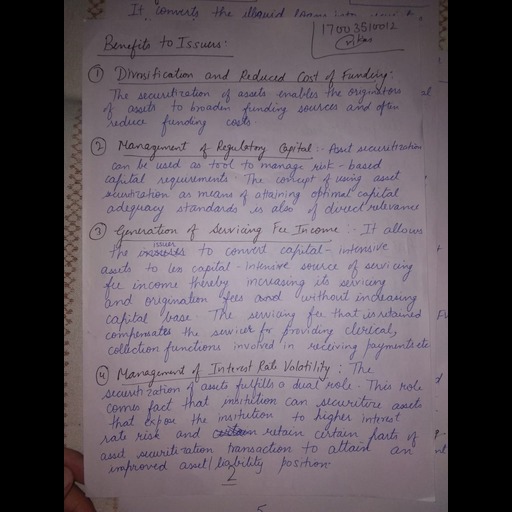 It converts the illiquid
17003510012
Benefits to Issuers:
① Diversification and Reduced Cost of Funding:
The securitization of assets enables the originators
of assets to broaden funding sources and often
reduce funding costs.
② Management of Regulatory Capital:- Asset securitization
can be used as tool to manage risk-based
capital requirements. The concept of using asset
securitization as means of attaining optimal capital
adequacy standards is also of direct relevance
③ Generation of Servicing Fee Income:- It allows
the issuer to convert capital-intensive
assets to less capital-intensive source of servicing
fee income thereby increasing its servicing
and origination fees and without increasing
capital base. The servicing fee that is retained
compensates the servicer for providing clerical,
collection functions involved in receiving payments etc
④ Management of Interest Rate Volatility: The
securitization of assets fulfills a dual role. This role
comes fact that institution can securitize assets
that expose the institution to higher interest
rate risk and retain certain parts of
asset securitization transaction to attain an
improved asset/liability position.
2